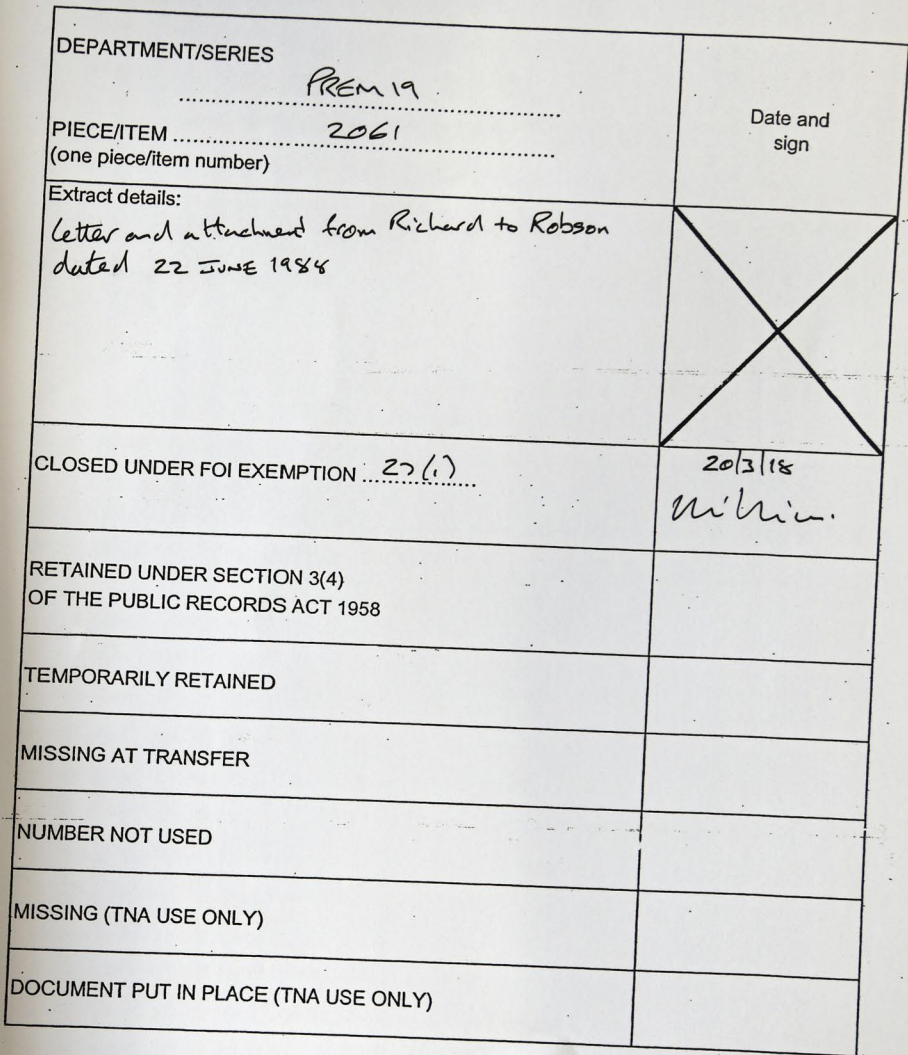 DEPARTMENT/SERIES
PREM 19
PIECE/ITEM 2061
(one piece/item number)
Date and
sign
Extract details:
Letter and attachment from Richard to Robson
dated 22 JUNE 1988
CLOSED UNDER FOI EXEMPTION 27(1)
20/3/18
RETAINED UNDER SECTION 3(4)
OF THE PUBLIC RECORDS ACT 1958
TEMPORARILY RETAINED
MISSING AT TRANSFER
NUMBER NOT USED
MISSING (TNA USE ONLY)
DOCUMENT PUT IN PLACE (TNA USE ONLY)